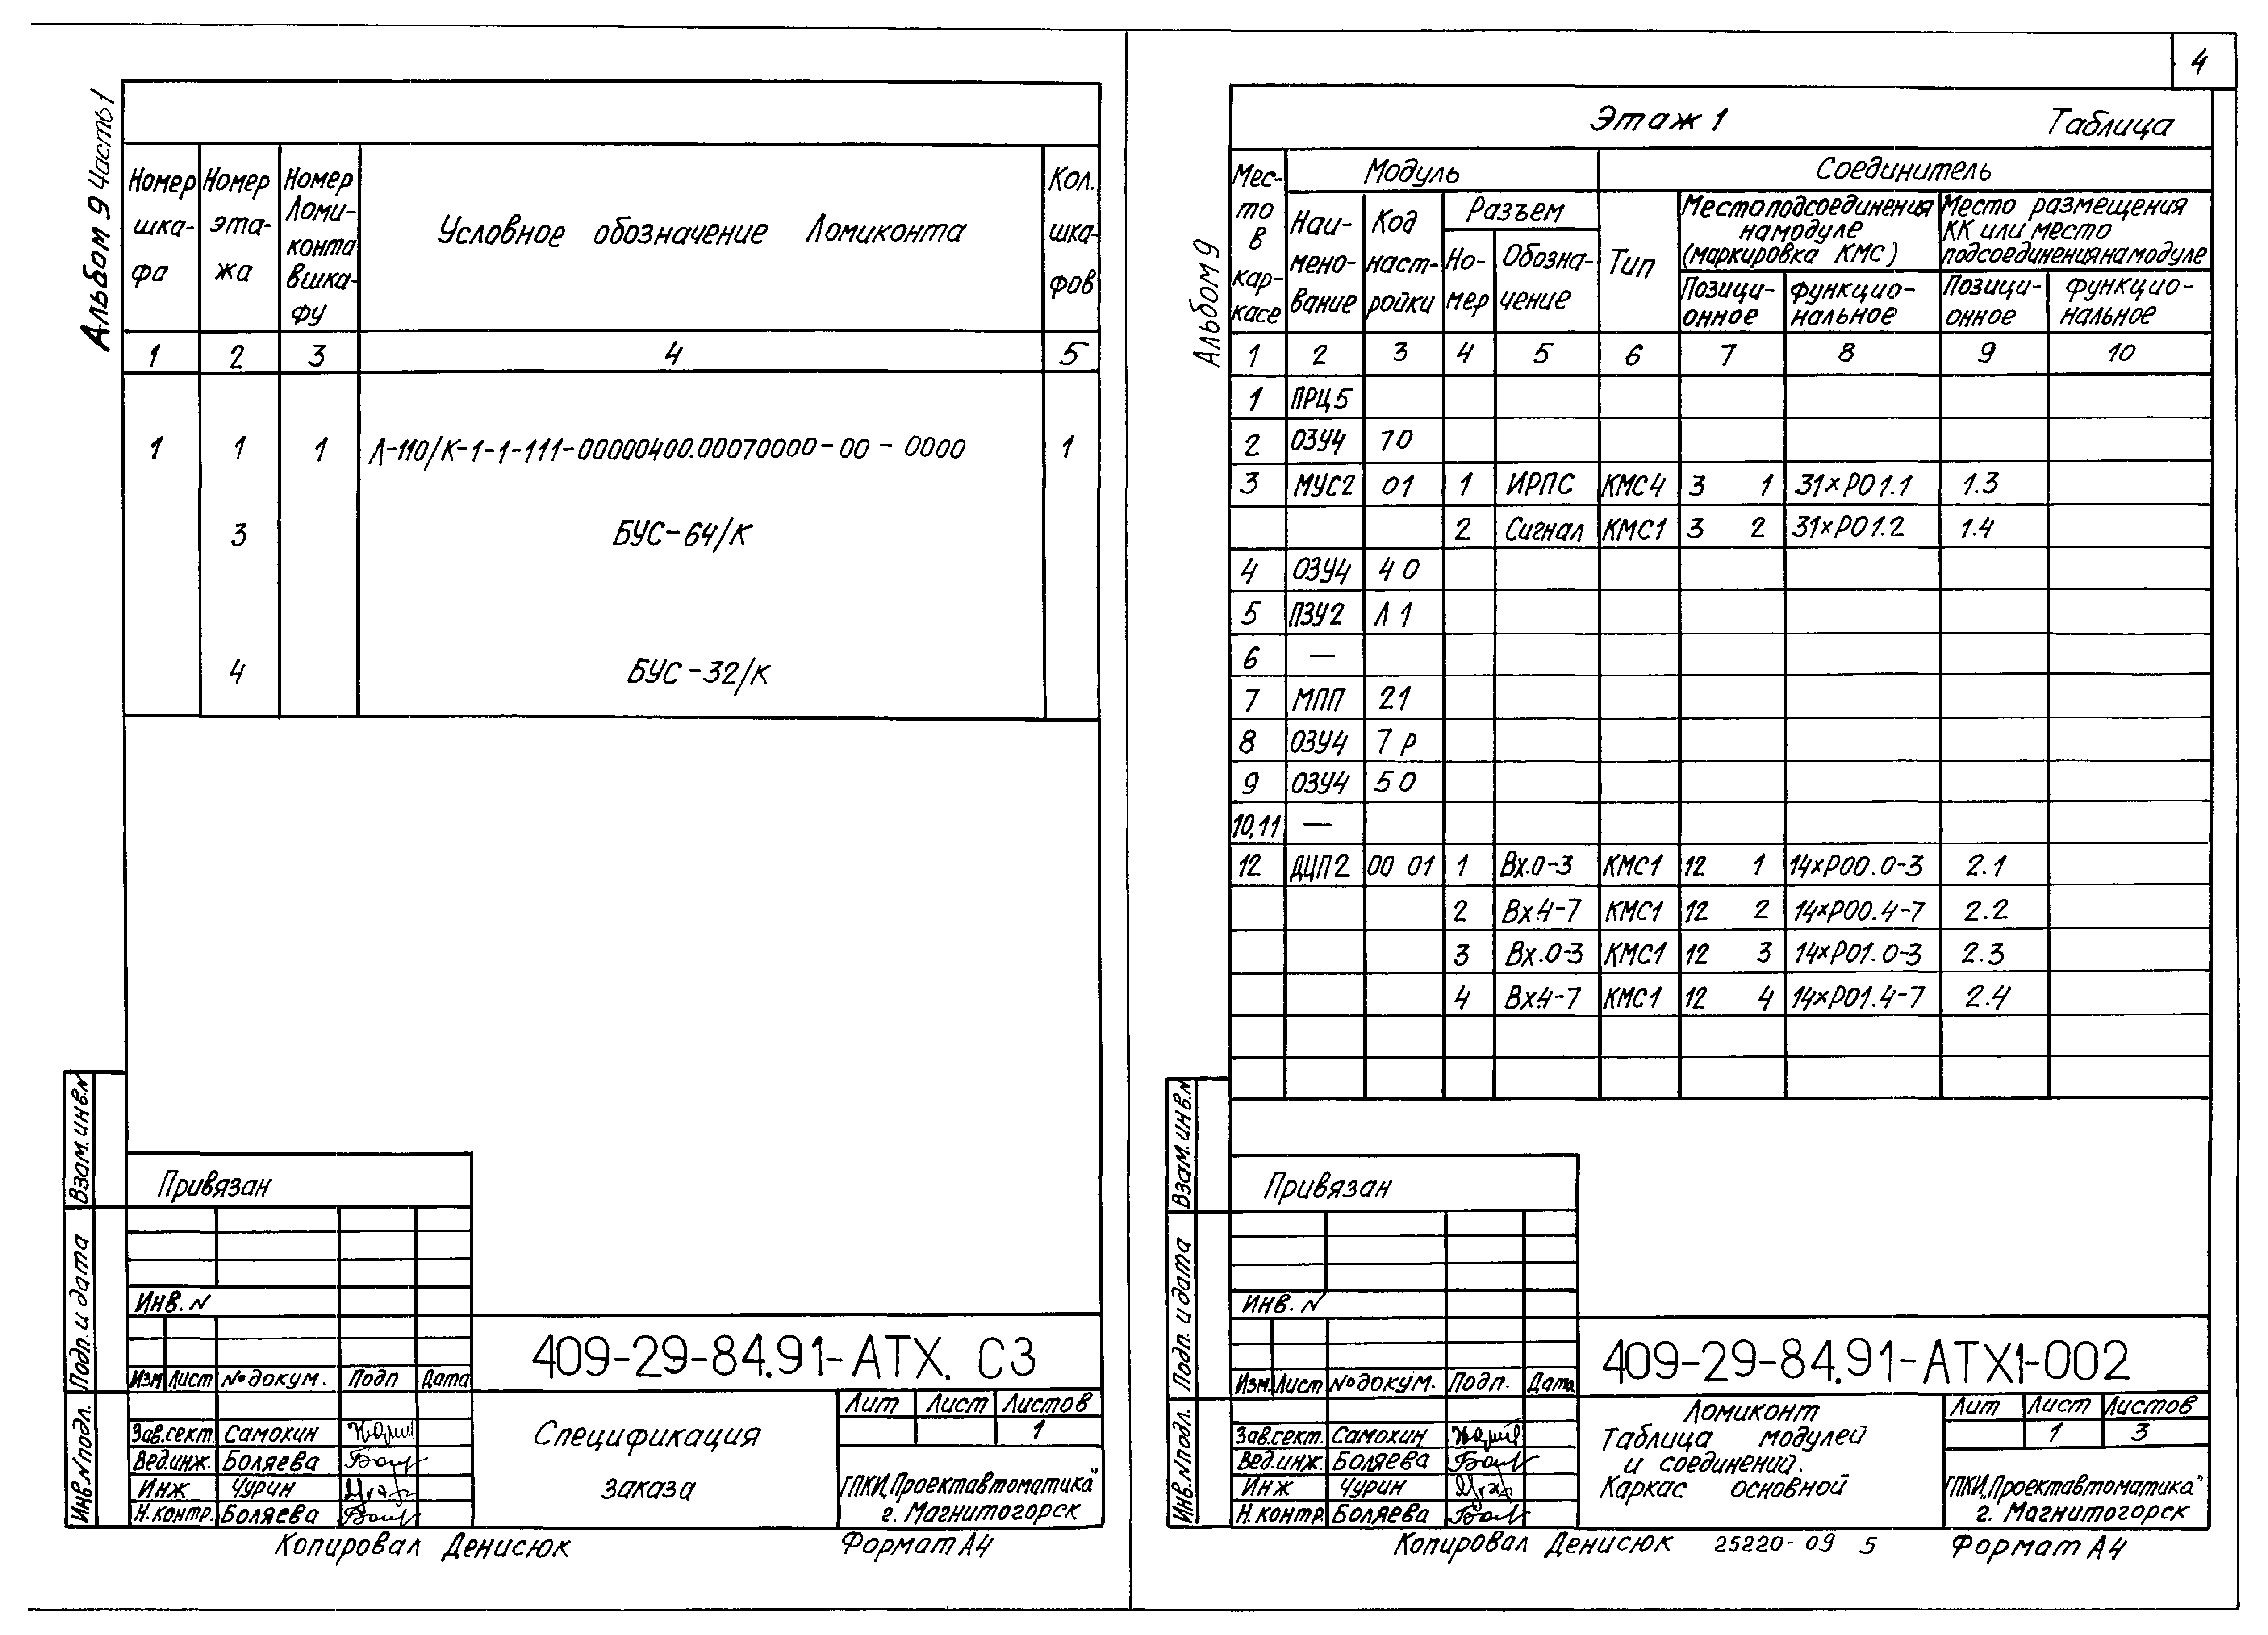 Альбом 9 Часть 1
Номер шка- фа
Номер эта- жа
Номер Ломи- конта в шка- фу
Условное обозначение Ломиконта
Кол. шка- фов
1 2 3 4 5
1 1 1 Л-110/К-1-1-111-00000400.00070000-00-0000 1
3 БУС-64/К
4 БУС-32/К
Взам. инв. N
Подп. и дата
Инв. N подл.
Привязан
Инв. N
Изм Лист № докум. Подп Дата
409-29-84.91-АТХ. С3
Зав.сект. Самохин
Вед.инж. Боляева
Инж Чурин
Н.контр. Боляева
Спецификация
заказа
Лит Лист Листов
1
ГПКИ „Проектавтоматика"
г. Магнитогорск
Копировал Денисюк Формат А4
4
Альбом 9
Этаж 1 Таблица
Мес- то в кар- касе
Модуль
Соединитель
Наи- мено- вание
Код наст- ройки
Разъем
Но- мер
Обозна- чение
Тип
Место подсоединения
на модуле
(маркировка КМС)
Место размещения
КК или место
подсоединения на модуле
Позици- онное
Функцио- нальное
Позици- онное
Функцио- нальное
1 2 3 4 5 6 7 8 9 10
1 ПРЦ5
2 ОЗУ4 70
3 МУС2 01 1 ИРПС КМС4 3 1 31×Р01.1 1.3
2 Сигнал КМС1 3 2 31×Р01.2 1.4
4 ОЗУ4 40
5 ПЗУ2 Л1
6 —
7 МПП 21
8 ОЗУ4 7Р
9 ОЗУ4 50
10,11 —
12 ДЦП2 00 01 1 Вх.0-3 КМС1 12 1 14×Р00.0-3 2.1
2 Вх.4-7 КМС1 12 2 14×Р00.4-7 2.2
3 Вх.0-3 КМС1 12 3 14×Р01.0-3 2.3
4 Вх.4-7 КМС1 12 4 14×Р01.4-7 2.4
Взам. инв. N
Подп. и дата
Инв. N подл.
Привязан
Инв. N
Изм. Лист № докум. Подп. Дата
409-29-84.91-АТХ1-002
Зав.сект. Самохин
Вед.инж. Боляева
Инж Чурин
Н.контр. Боляева
Ломиконт
Таблица модулей
и соединений.
Каркас основной
Лит Лист Листов
1 3
ГПКИ „Проектавтоматика"
г. Магнитогорск
Копировал Денисюк 25220-09 5 Формат А4